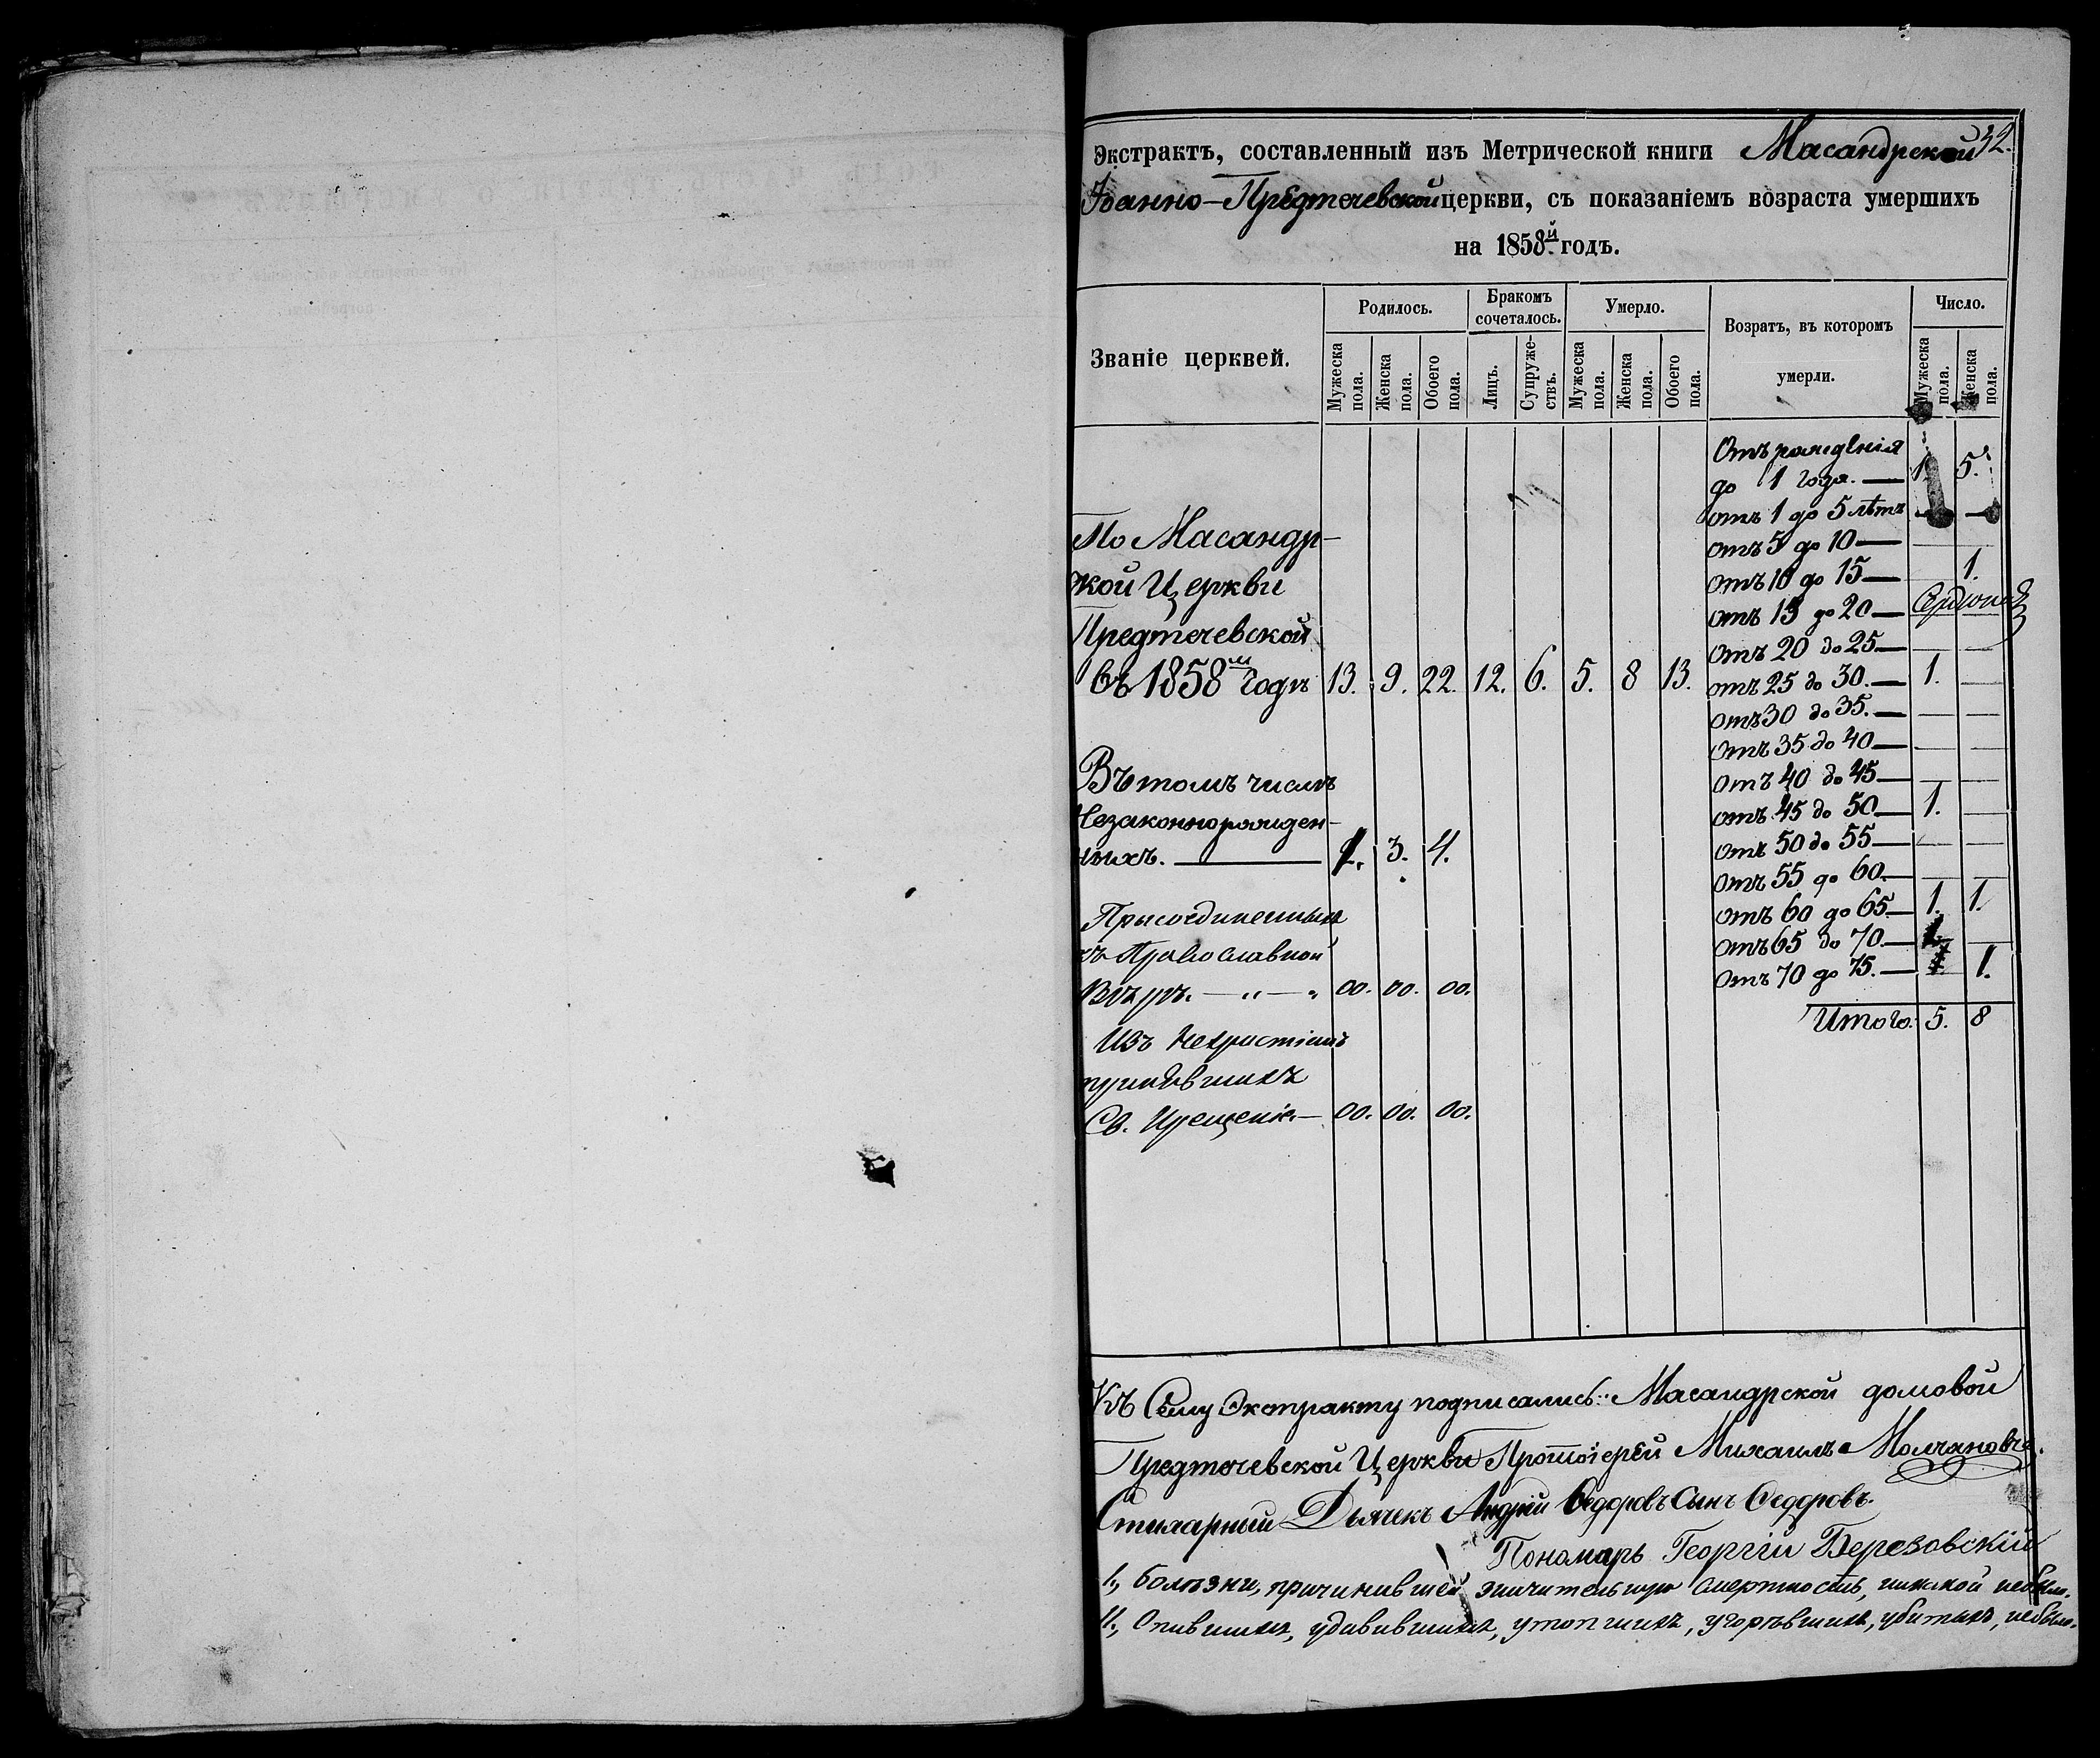 32.
Экстрактъ, составленный изъ Метрической книги Масандрской
Іоанно-Предтечевской церкви, съ показаніемъ возраста умершихъ
на 1858й годъ.
Званіе церквей.
Родилось.
Бракомъ сочеталось.
Умерло.
Возратъ, въ которомъ умерли.
Число.
Мужеска пола.
Женска пола.
Обоего пола.
Лицъ.
Супруже-ствъ.
Мужеска пола.
Женска пола.
Обоего пола.
Мужеска пола.
Женска пола.
По Масандр-
ской Церкви
Предтечевской
въ 1858м годѣ 13. 9. 22. 12. 6. 5. 8 13.
Въ томъ числѣ
Незаконнорожден-
ныхъ. — 1. 3. 4.
Присоединенныхъ
къ Православной
Вѣрѣ. — „ — „ 00. 00. 00.
Изъ Нехристіанъ
принявшихъ
Св. Крещеніе — 00. 00. 00.
Отъ рожденія
до 1 года. — 1. 5.
отъ 1 до 5 лѣтъ — —
отъ 5 до 10 — — —
отъ 10 до 15 — — 1.
отъ 15 до 20 —
отъ 20 до 25 — — —
отъ 25 до 30. — 1. —
отъ 30 до 35. — — —
отъ 35 до 40 — — —
отъ 40 до 45 — — —
отъ 45 до 50 — 1. —
отъ 50 до 55 — — —
отъ 55 до 60. — — —
отъ 60 до 65. — 1. 1.
отъ 65 до 70. — 1. —
отъ 70 до 75. — 1.
Итого: 5. 8
Къ Сему Экстракту подписались: Масандрской домовой
Предтечевской Церкви Протоіерей Михаилъ Молчановъ.
Стихарный Дьячекъ Андрій Ѳедоровъ Сынъ Ѳедоровъ.
Пономарь Георгій Березовскій
1., Болѣзни, причинившей значительную смертность, никакой небыло.
11., Опившихъ, удавившихъ, утопшихъ, угорѣвшихъ, убитыхъ, небыло.